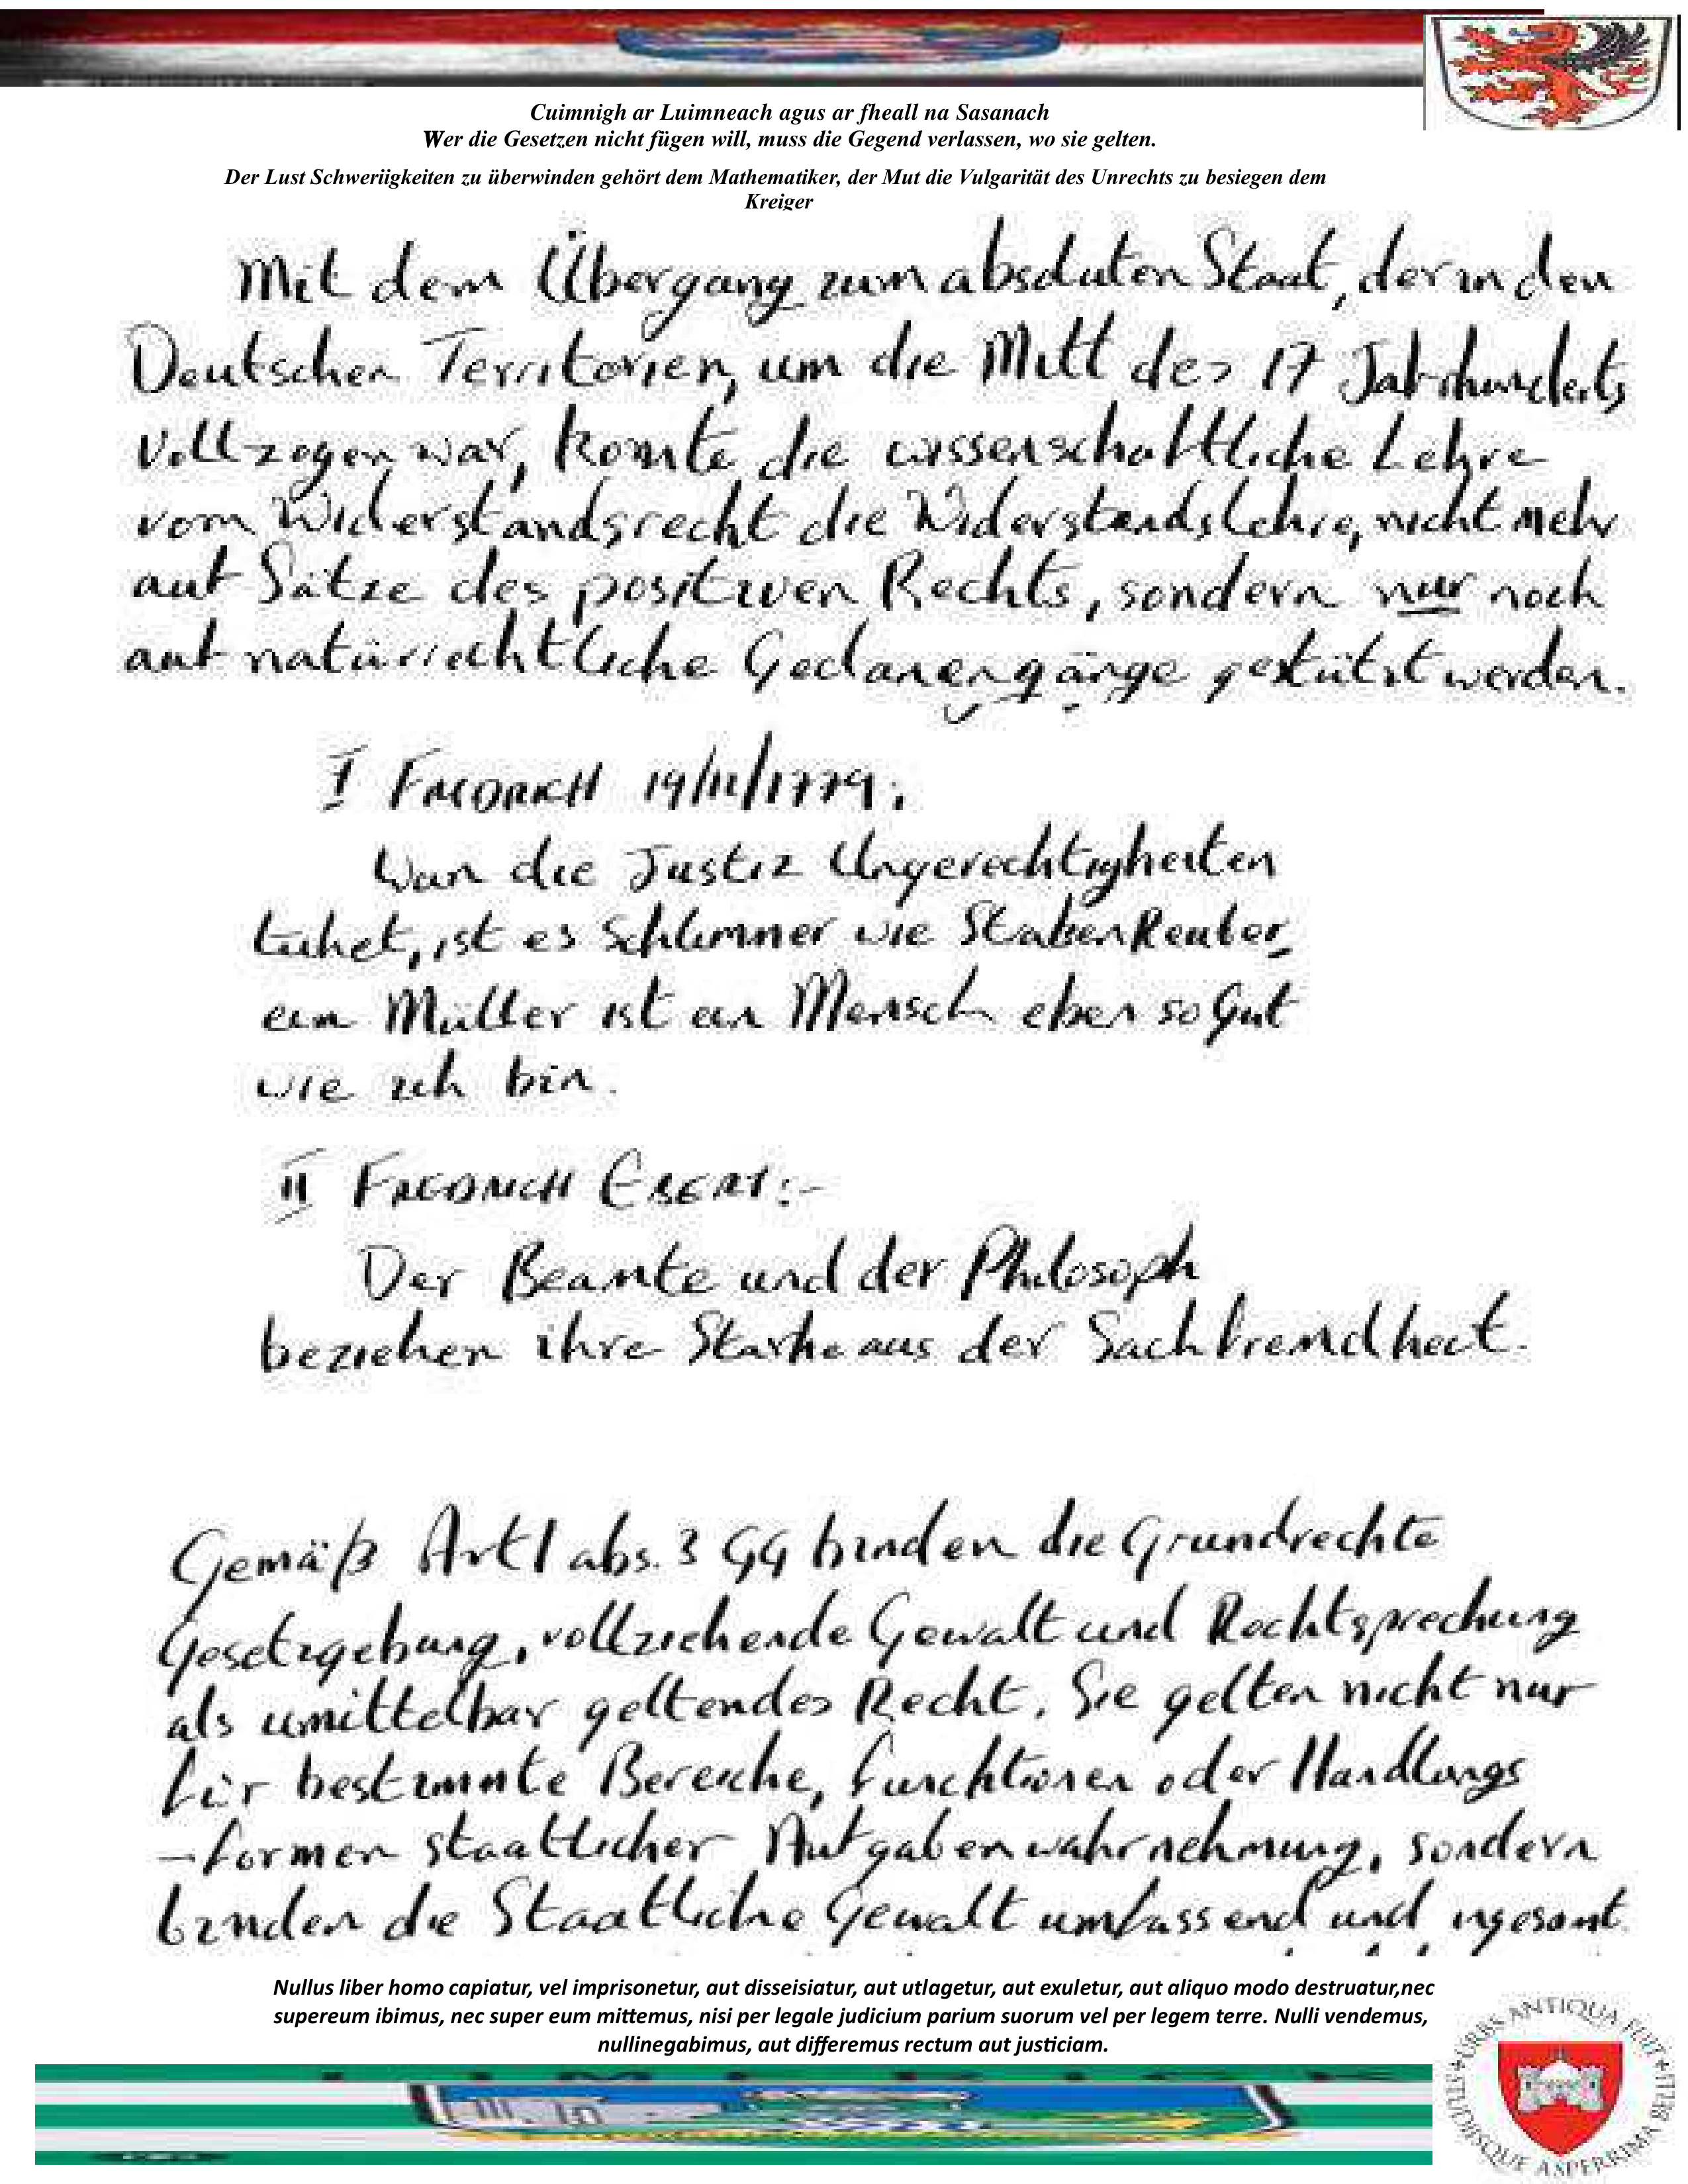 Cuimnigh ar Luimneach agus ar fheall na Sasanach
Wer die Gesetzen nicht fügen will, muss die Gegend verlassen, wo sie gelten.
Der Lust Schweriigkeiten zu überwinden gehört dem Mathematiker, der Mut die Vulgarität des Unrechts zu besiegen dem
Kreiger
Mit dem Übergang zum absoluten Staat, der in den
Deutschen Territorien, um die Mitt des 17 Jahrhunderts
vollzogen war, konnte die wissenschaftliche Lehre
vom Widerstandsrecht die Widerstandslehre, nicht mehr
auf Sätze des positiven Rechts, sondern nur noch
auf naturrechtliche gestützt werden.
I FREDRICH 19/11/1779:
Wan die Justiz Ungerechtigheiten
tuhet, ist es Schlimmer wie
ein Müller ist ein Mensch eben so Gut
wie ich bin.
II FREDRICH EBERT:-
Der Beamte und der Philosoph
beziehen ihre Starke aus der Sachfremdheit.
Gemäß Art 1 abs. 3 GG binden die Grundrechte
Gesetzgebung, vollziehende Gewalt und Rechtsprechung
als umittelbar geltendes Recht. Sie gelten nicht nur
für bestimmte Bereiche, Funchtionen oder Handlungs
-formen staatlicher Aufgabenwahrnehmung, sondern
binden die Staatliche Gewalt umfassend und ingesamt.
Nullus liber homo capiatur, vel imprisonetur, aut disseisiatur, aut utlagetur, aut exuletur, aut aliquo modo destruatur,nec
supereum ibimus, nec super eum mittemus, nisi per legale judicium parium suorum vel per legem terre. Nulli vendemus,
nullinegabimus, aut differemus rectum aut justiciam.
URBS ANTIQUA FUIT STUDIISQUE ASPERRIMA BELLI